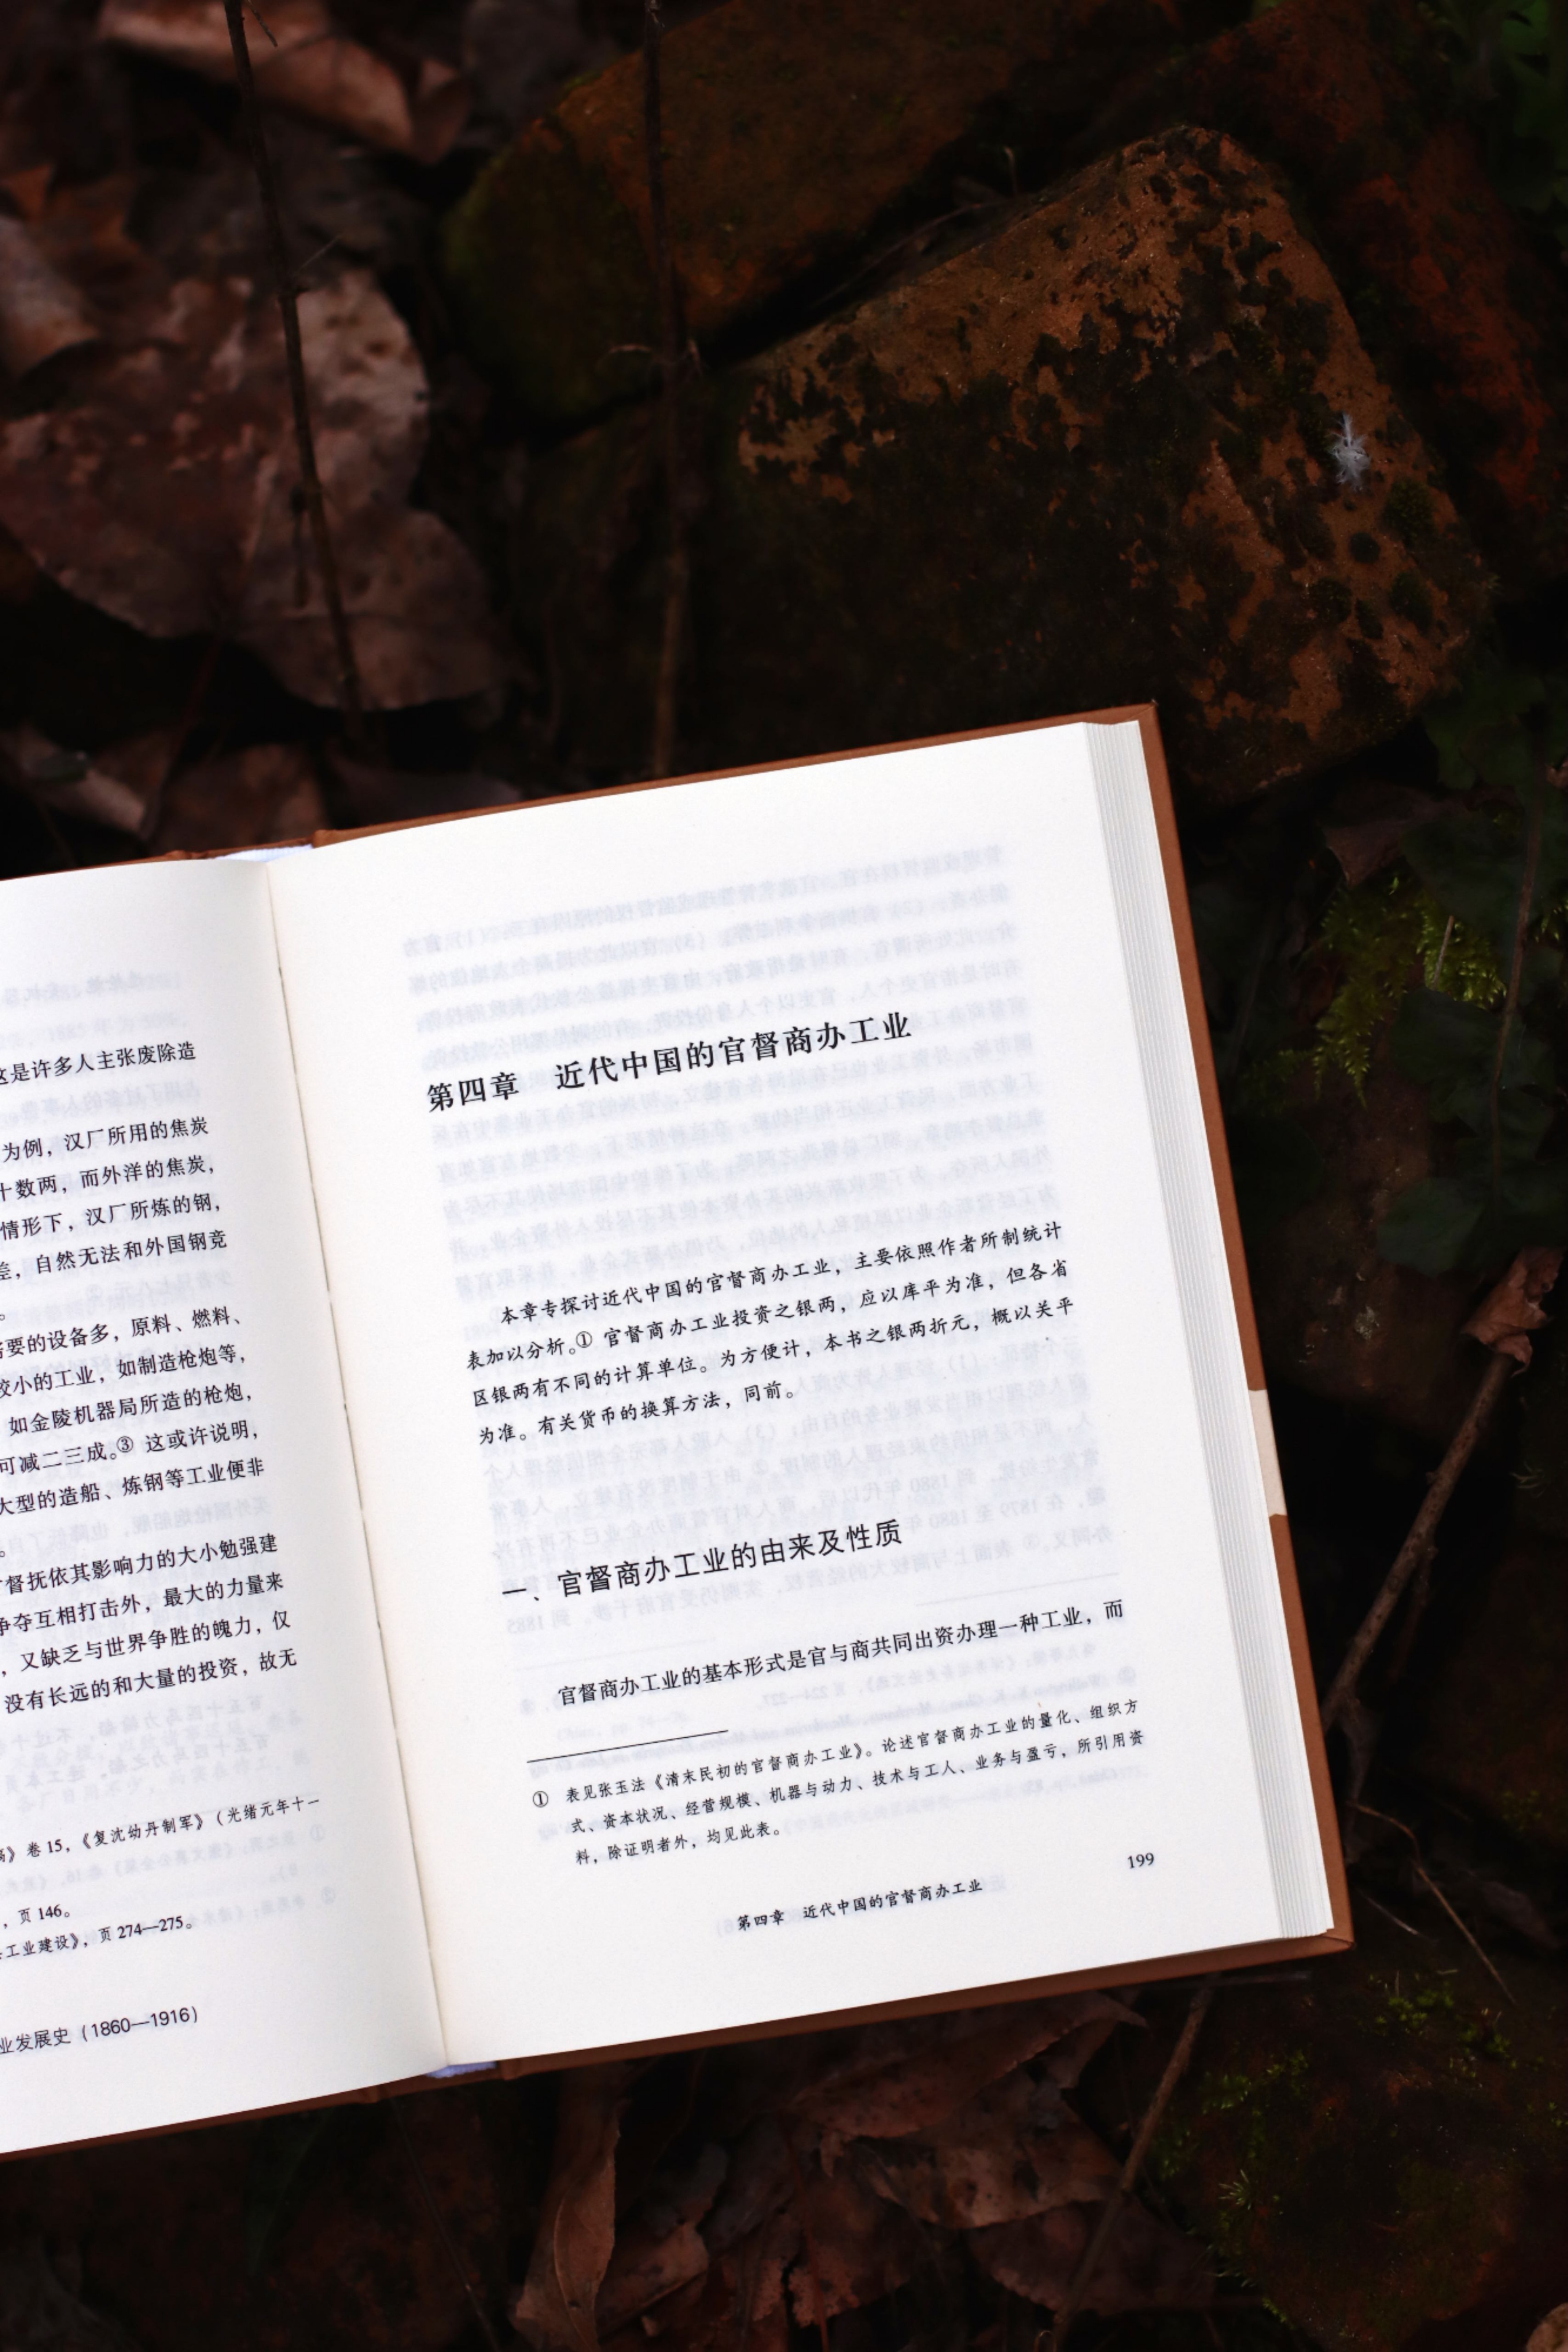 这是许多人主张废除造
为例，汉厂所用的焦炭
十数两，而外洋的焦炭，
情形下，汉厂所炼的钢，
差，自然无法和外国钢竞
。
要的设备多，原料、燃料、
较小的工业，如制造枪炮等，
如金陵机器局所造的枪炮，
可减二三成。③ 这或许说明，
大型的造船、炼钢等工业便非
。
督抚依其影响力的大小勉强建
争夺互相打击外，最大的力量来
，又缺乏与世界争胜的魄力，仅
没有长远的和大量的投资，故无
》卷 15，《复沈幼丹制军》（光绪元年十一
，页 146。
工业建设》，页 274—275。
业发展史（1860—1916）
第四章 近代中国的官督商办工业
本章专探讨近代中国的官督商办工业，主要依照作者所制统计
表加以分析。① 官督商办工业投资之银两，应以库平为准，但各省
区银两有不同的计算单位。为方便计，本书之银两折元，概以关平
为准。有关货币的换算方法，同前。
一、官督商办工业的由来及性质
官督商办工业的基本形式是官与商共同出资办理一种工业，而
① 表见张玉法《清末民初的官督商办工业》。论述官督商办工业的量化、组织方
式、资本状况、经营规模、机器与动力、技术与工人、业务与盈亏，所引用资
料，除证明者外，均见此表。
第四章 近代中国的官督商办工业
199